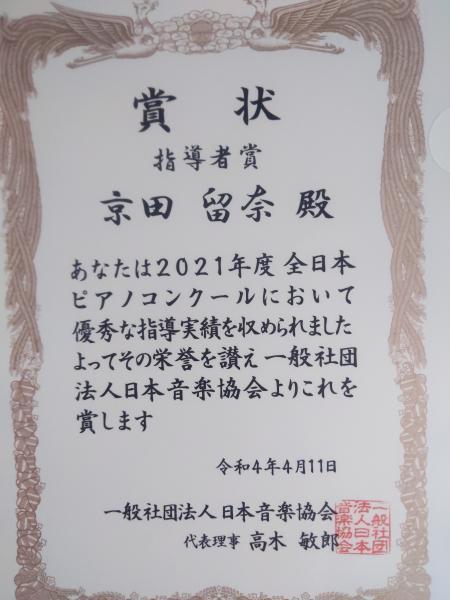 賞 状
指導者賞
京田 留奈 殿
あなたは2021年度 全日本
ピアノコンクールにおいて
優秀な指導実績を収められました
よってその栄誉を讃え 一般社団
法人日本音楽協会よりこれを
賞します
令和4年4月11日
一般社団法人 日本音楽協会
代表理事 高木 敏郎
一般社団
法人日本
音楽協会